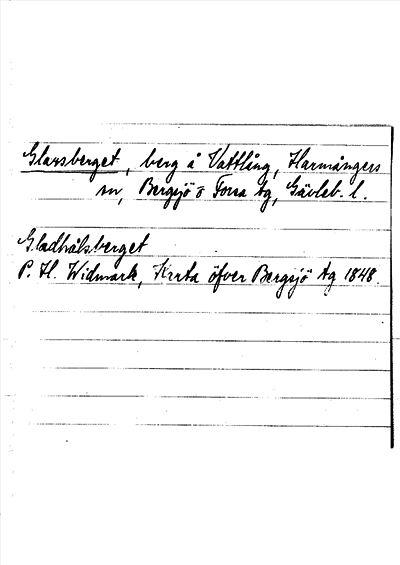 Glassberget, berg å Vattlång, Harmångers
sn, Bergsjö o Forsa tg, Gävleb. l.
Gladhålsberget
P. H. Widmark, Karta öfver Bergsjö tg 1848.